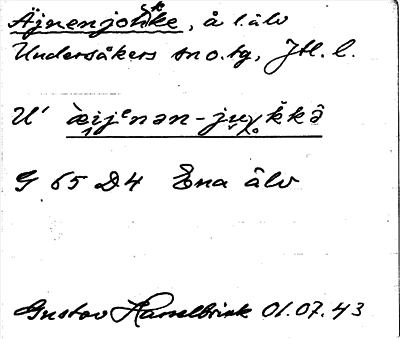 Äjnenjohke, å l. älv
Undersåkers sn o. tg, Jtl. l.
U' æijᵉnən-juχkkə̂
G 65 D4 Ena älv
Gustav Hasselbrink 01.07.43